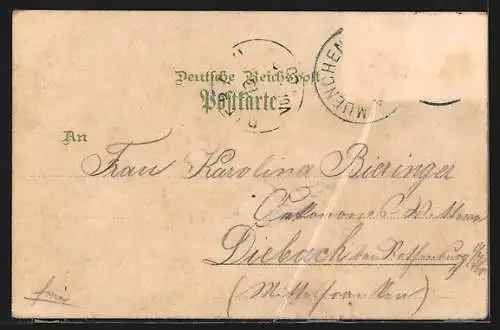 Deutsche Reichspost
Postkarte
MUENCHEN
An
Frau Karolina Bieringer
Oekonoms Wittwe
Diebach bei Rothenburg
(Mittelfranken)
frei